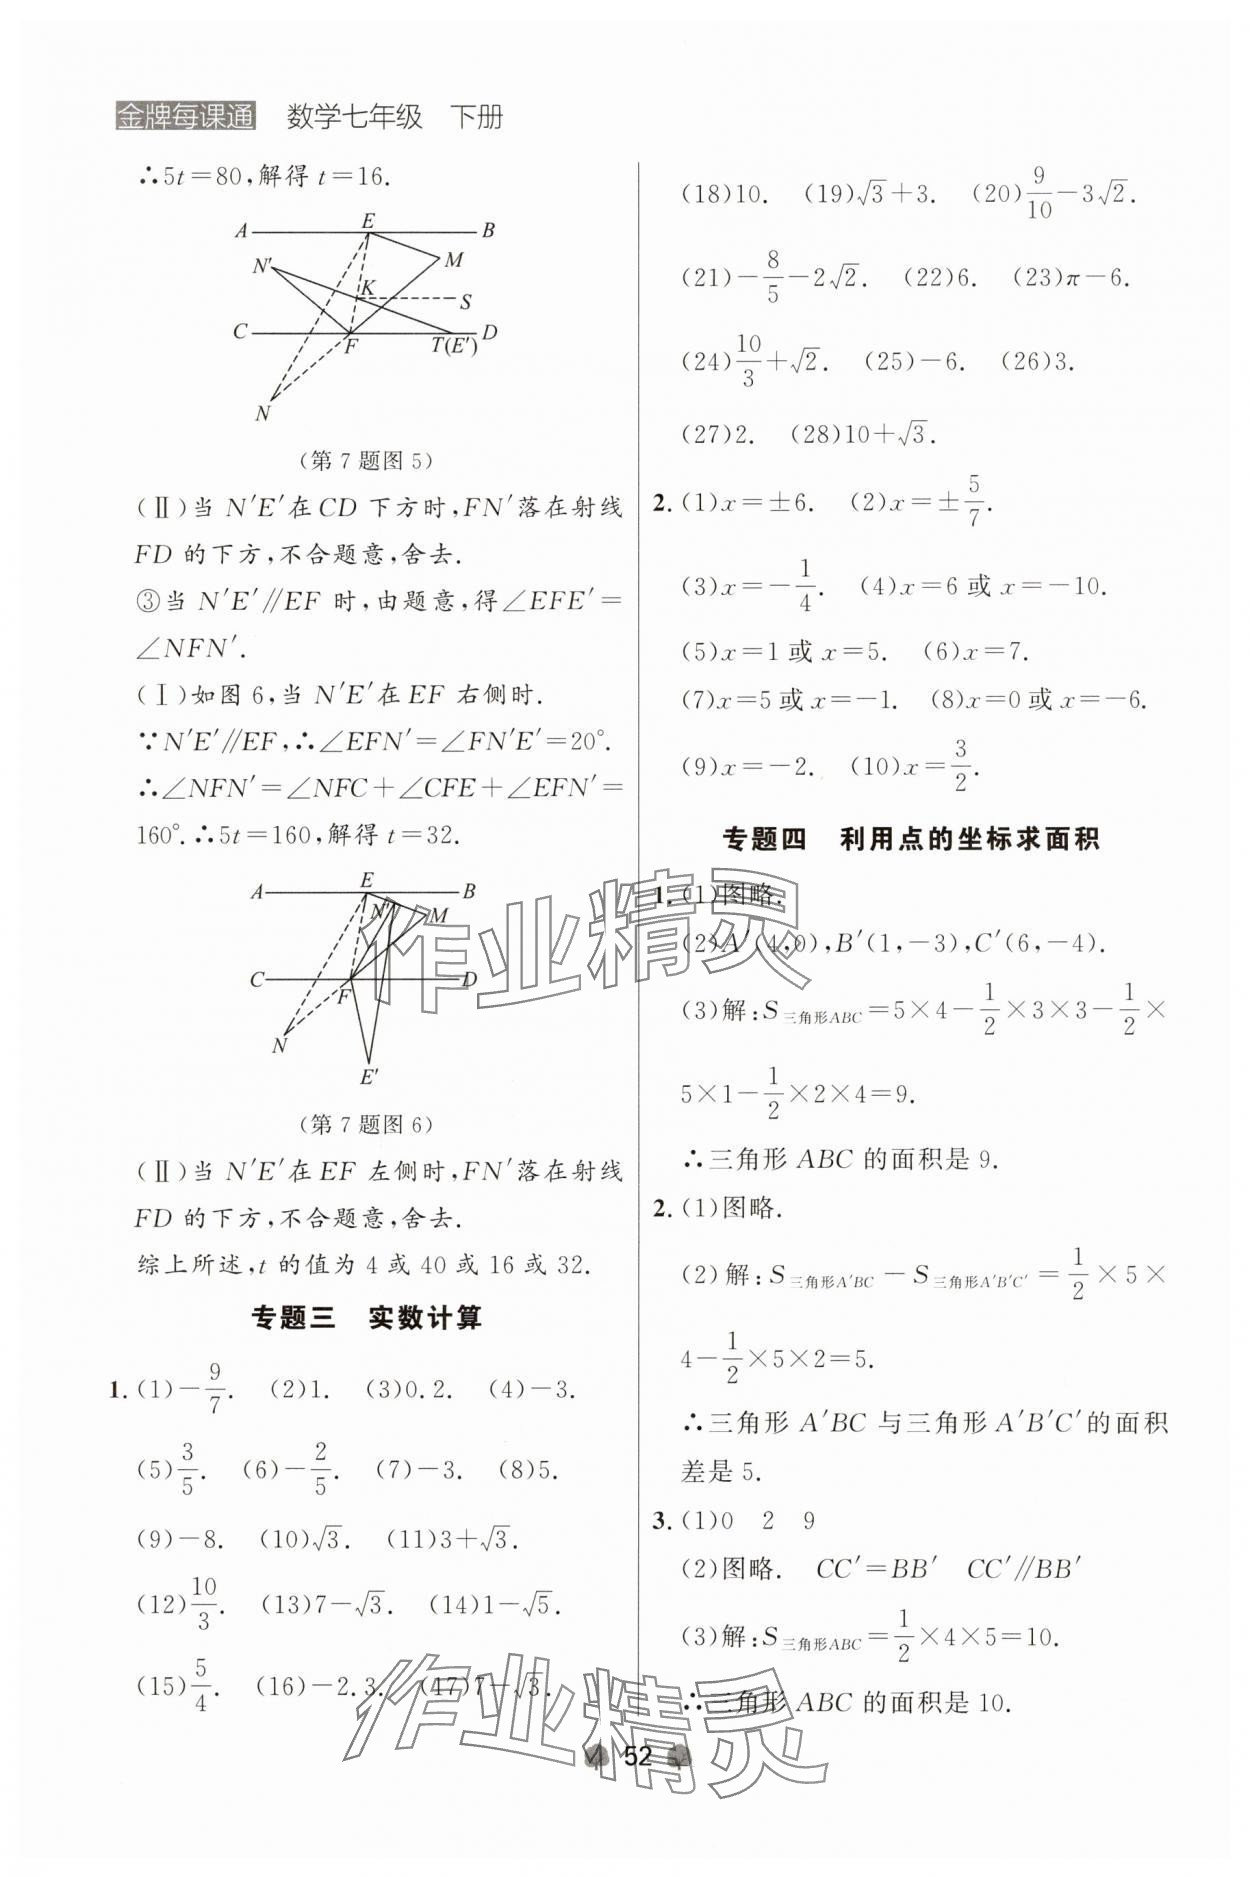 金牌每课通 数学七年级 下册
∴5t=80,解得 t=16.
A E B
N′ M
K S
C F T(E′) D
N
(第 7 题图 5)
(Ⅱ)当 N′E′在CD 下方时,FN′落在射线
FD 的下方,不合题意,舍去.
③当 N′E′∥EF 时,由题意,得∠EFE′=
∠NFN′.
(Ⅰ)如图 6,当 N′E′在 EF 右侧时.
∵N′E′∥EF,∴∠EFN′=∠FN′E′=20°.
∴∠NFN′=∠NFC+∠CFE+∠EFN′=
160°.∴5t=160,解得 t=32.
A E B
N′ M
C F D
N
E′
(第 7 题图 6)
(Ⅱ)当 N′E′在 EF 左侧时,FN′落在射线
FD 的下方,不合题意,舍去.
综上所述,t 的值为 4 或 40 或 16 或 32.
专题三 实数计算
1.(1)-9/7. (2)1. (3)0.2. (4)-3.
(5)3/5. (6)-2/5. (7)-3. (8)5.
(9)-8. (10)√3. (11)3+√3.
(12)10/3. (13)7-√3. (14)1-√5.
(15)5/4. (16)-2.3. (17)7-√3.
(18)10. (19)√3+3. (20)9/10-3√2.
(21)-8/5-2√2. (22)6. (23)π-6.
(24)10/3+√2. (25)-6. (26)3.
(27)2. (28)10+√3.
2.(1)x=±6. (2)x=±5/7.
(3)x=-1/4. (4)x=6 或 x=-10.
(5)x=1或 x=5. (6)x=7.
(7)x=5或 x=-1. (8)x=0或 x=-6.
(9)x=-2. (10)x=3/2.
专题四 利用点的坐标求面积
1.(1)图略.
(2)A′(4,0),B′(1,-3),C′(6,-4).
(3)解:S三角形ABC=5×4-1/2×3×3-1/2×
5×1-1/2×2×4=9.
∴三角形 ABC 的面积是 9.
2.(1)图略.
(2)解:S三角形A′BC-S三角形A′B′C′=1/2×5×
4-1/2×5×2=5.
∴三角形 A′BC 与三角形 A′B′C′的面积
差是 5.
3.(1)0 2 9
(2)图略. CC′=BB′ CC′∥BB′
(3)解:S三角形ABC=1/2×4×5=10.
∴三角形 ABC 的面积是 10.
52
作业精灵
作业精灵